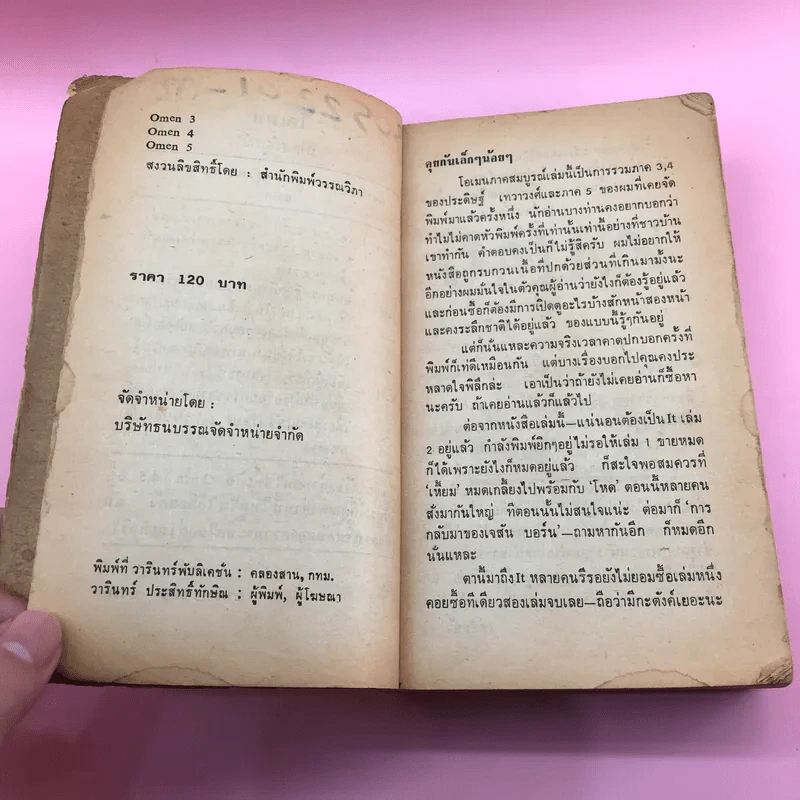 Omen 3
Omen 4
Omen 5
สงวนลิขสิทธิ์โดย : สำนักพิมพ์วรรณวิภา
ราคา 120 บาท
จัดจำหน่ายโดย :
บริษัทธนบรรณจัดจำหน่ายจำกัด
พิมพ์ที่ วารินทร์พับลิเคชั่น : คลองสาน, กทม.
วารินทร์ ประสิทธิ์ทักษิณ : ผู้พิมพ์, ผู้โฆษณา
คุยกันเล็กๆน้อยๆ
โอเมนภาคสมบูรณ์เล่มนี้เป็นการรวมภาค 3,4
ของประดิษฐ์ เทวาวงศ์และภาค 5 ของผมที่เคยจัด
พิมพ์มาแล้วครั้งหนึ่ง นักอ่านบางท่านคงอยากบอกว่า
ทำไมไม่คาดหัวพิมพ์ครั้งที่เท่านั้นเท่านี้อย่างที่ชาวบ้าน
เขาทำกัน คำตอบคงเป็นก็ไม่รู้สิครับ ผมไม่อยากให้
หนังสือถูกรบกวนเนื้อที่ปกด้วยส่วนที่เกินมามั้งนะ
อีกอย่างผมมั่นใจในตัวคุณผู้อ่านว่ายังไงก็ต้องรู้อยู่แล้ว
และก่อนซื้อก็ต้องมีการเปิดดูอะไรบ้างสักหน้าสองหน้า
และคงระลึกชาติได้อยู่แล้ว ของแบบนี้รู้ๆกันอยู่
แต่ก็นั่นแหละความจริงเวลาคาดปกบอกครั้งที่
พิมพ์ก็เท่ดีเหมือนกัน แต่บางเรื่องบอกไปคุณคงประ
หลาดใจพิลึกล่ะ เอาเป็นว่าถ้ายังไม่เคยอ่านก็ซื้อหา
นะครับ ถ้าเคยอ่านแล้วก็แล้วไป
ต่อจากหนังสือเล่มนี้—แน่นอนต้องเป็นIt เล่ม
2 อยู่แล้ว กำลังพิมพ์ยิกๆอยู่ไม่รอให้เล่ม 1 ขายหมด
ก็ได้เพราะยังไงก็หมดอยู่แล้ว ก็สะใจพอสมควรที่
'เหี้ยม' หมดเกลี้ยงไปพร้อมกับ 'โหด' ตอนนี้หลายคน
สั่งมากันใหญ่ ทีตอนนั้นไม่สนใจแน่ะ ต่อมาก็ 'การ
กลับมาของเจสัน บอร์น'—ถามหากันอีก ก็หมดอีก
นั่นแหละ
ตานี้มาถึงIt หลายคนรีรอยังไม่ยอมซื้อเล่มหนึ่ง
คอยซื้อทีเดียวสองเล่มจบเลย—ถือว่ามีกะตังค์เยอะนะ